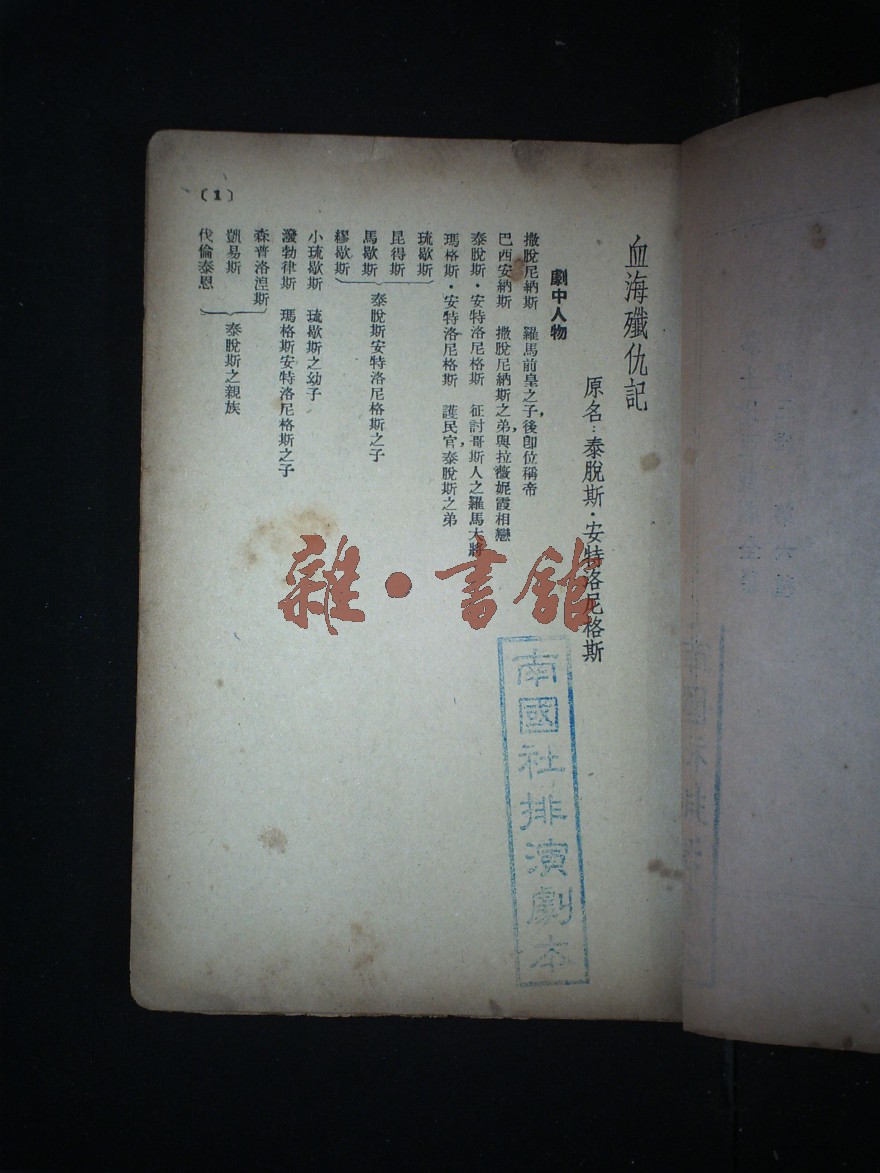 血海殲仇記
原名：泰脫斯・安特洛尼格斯
劇中人物
撒脫尼納斯　羅馬前皇之子，後即位稱帝
巴西安納斯　撒脫尼納斯之弟，與拉薇妮霞相戀
泰脫斯・安特洛尼格斯　征討哥斯人之羅馬大將
瑪格斯・安特洛尼格斯　護民官，泰脫斯之弟
琉歇斯
昆得斯
馬歇斯
繆歇斯
泰脫斯安特洛尼格斯之子
小琉歇斯　琉歇斯之幼子
潑勃律斯　瑪格斯安特洛尼格斯之子
森普洛涅斯
凱易斯
代倫泰恩
泰脫斯之親族
〔1〕
雜・書館
南國社排演劇本